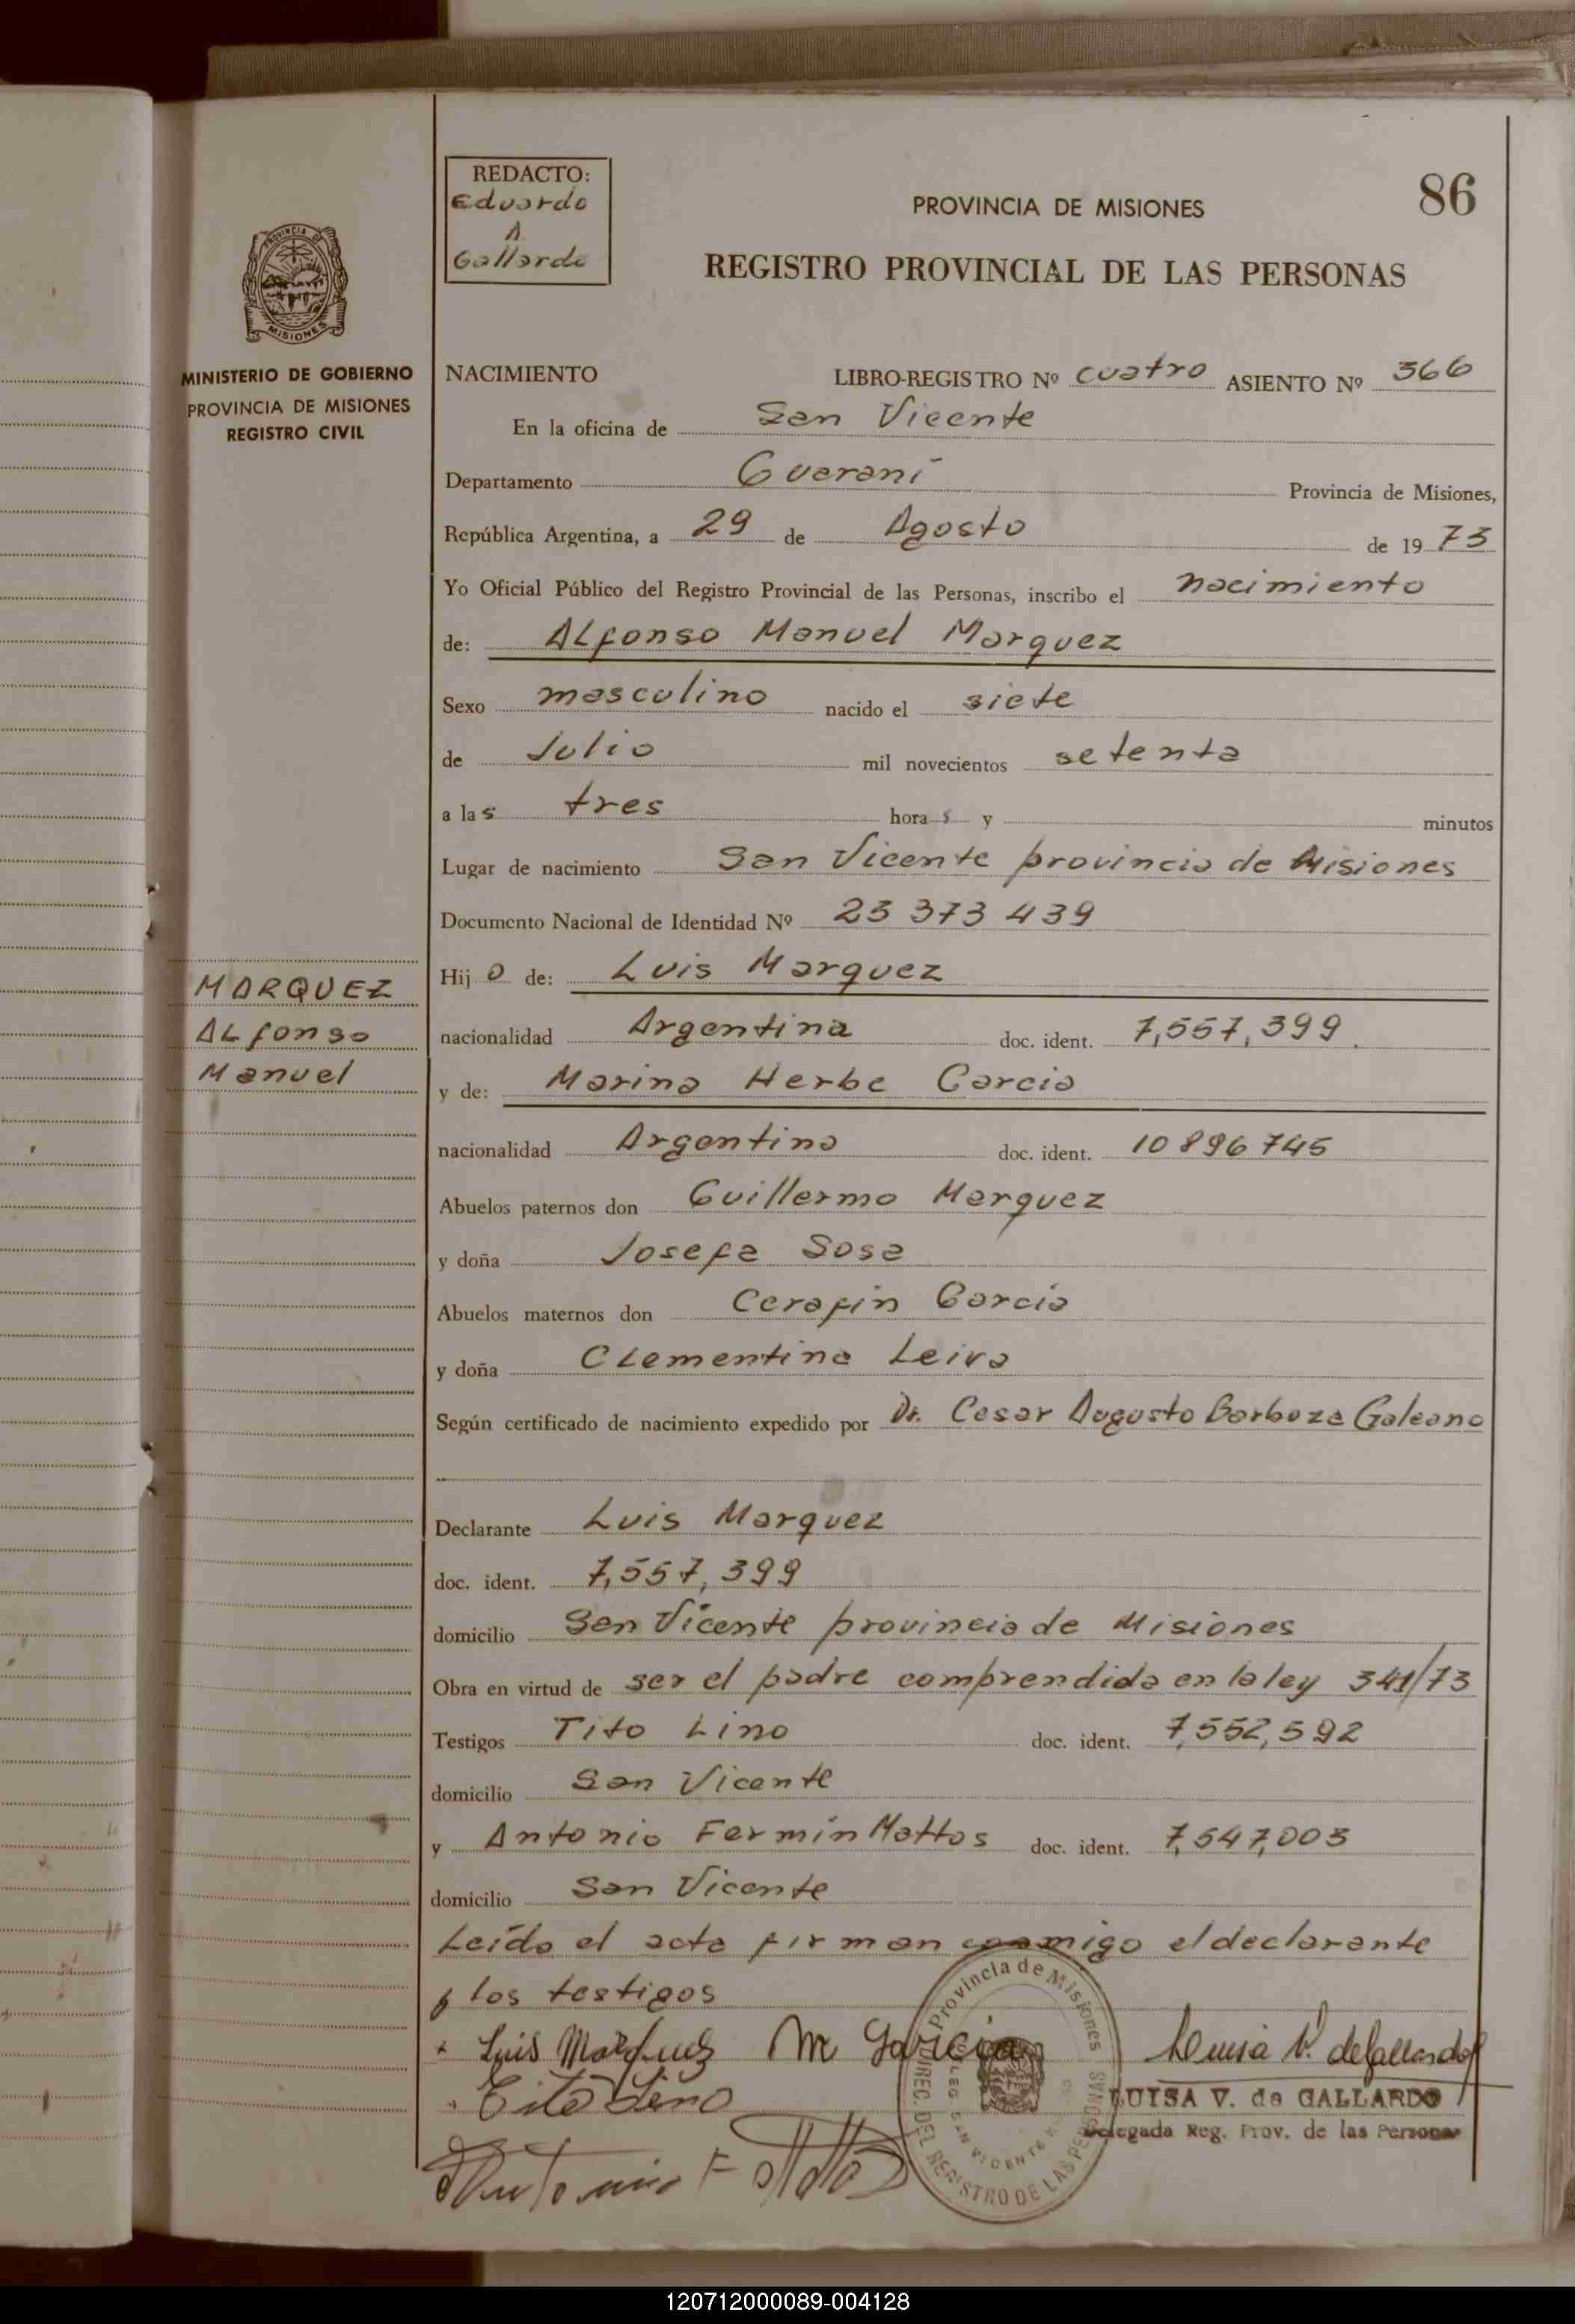 REDACTO:
Eduardo
A.
Gallardo
86
PROVINCIA DE MISIONES
REGISTRO PROVINCIAL DE LAS PERSONAS
PROVINCIA DE
MISIONES
MINISTERIO DE GOBIERNO
PROVINCIA DE MISIONES
REGISTRO CIVIL
NACIMIENTO LIBRO-REGISTRO Nº cuatro ASIENTO Nº 366
En la oficina de San Vicente
Departamento Guaraní Provincia de Misiones,
República Argentina, a 29 de Agosto de 1973
Yo Oficial Público del Registro Provincial de las Personas, inscribo el nacimiento
de: Alfonso Manuel Marquez
Sexo masculino nacido el siete
de Julio mil novecientos setenta
a las tres horas y minutos
Lugar de nacimiento San Vicente provincia de Misiones
Documento Nacional de Identidad Nº 23 373 439
MARQUEZ
Alfonso
Manuel
Hijo de: Luis Marquez
nacionalidad Argentina doc. ident. 7,557,399.
y de: Marina Herbe Garcia
nacionalidad Argentina doc. ident. 10 896 745
Abuelos paternos don Guillermo Marquez
y doña Josefa Sosa
Abuelos maternos don Cerafín García
y doña Clementina Leiva
Según certificado de nacimiento expedido por Dr. Cesar Augusto Barboza Galeano
Declarante Luis Marquez
doc. ident. 7,557,399
domicilio San Vicente provincia de Misiones
Obra en virtud de ser el padre comprendido en la ley 341/73
Testigos Tito Lino doc. ident. 7,552,592
domicilio San Vicente
y Antonio Fermín Mattos doc. ident. 7,547,003
domicilio San Vicente
Leída el acta firman conmigo el declarante
y los testigos
Luis Marquez M Garcia Luisa V. de Gallardo
Tito Lino
LUISA V. de GALLARDO
Delegada Reg. Prov. de las Personas
Antonio F Mattos
Provincia de Misiones
DIREC. DEL REGISTRO DE LAS PERSONAS
SAN VICENTE
120712000089-004128